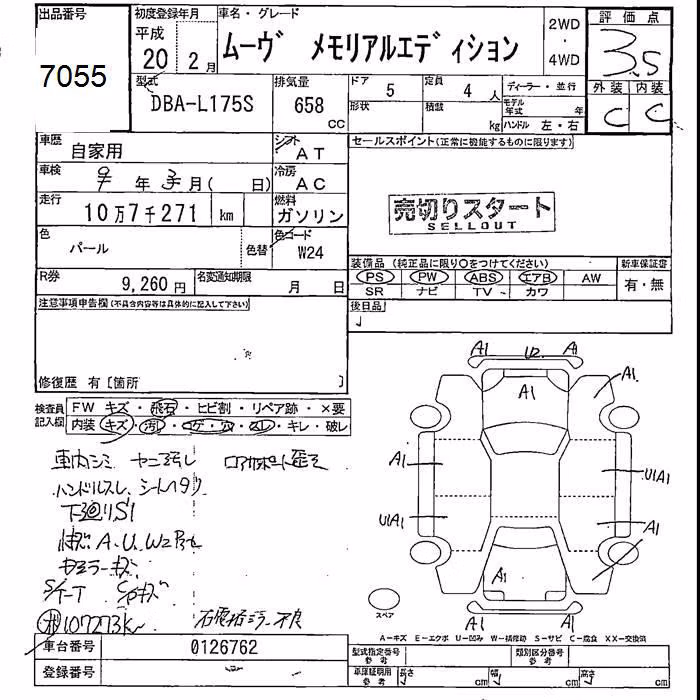 出品番号
7055
初度登録年月
平成
20 2月
車名・グレード
ムーヴ メモリアルエディション
2WD
・
4WD
評価点
3.5
外装 内装
C C
型式
DBA-L175S
排気量
658
CC
ドア
5
定員
4 人
形状
積載
kg
ディーラー・並行
モデル年式 年
ハンドル 左・右
車歴
自家用
シフト
AT
車検
年 3月( 日)
冷房
AC
走行
10万7千271 km
燃料
ガソリン
色
パール
色替
色コード
W24
R券
9,260円
名変通知期限
月 日
セールスポイント(正常に機能するものに限ります)
売切りスタート
SELLOUT
装備品(純正品に限り○をつけてください)
PS PW ABS エアB AW
SR ナビ TV カワ
新車保証書
有・無
後日品
注意事項申告欄(不具合内容等は具体的に記入して下さい)
修復歴 有[箇所 ]
検査員
記入欄
FW キズ・飛石・ヒビ割・リペア跡・×要
内装 キズ・汚レ・コゲ・穴・スレ・キレ・破レ
車内シミ
ハンドルスレ シートヘタリ
下回りS1
A.U.W2
107273k
A1 U2 A1
A1
A1
A1
U1A1
U1A1
A1
A1
A1 A1
スペア
A−キズ E−エクボ U−凹み W−補修跡 S−サビ C−腐食 XX−交換済
車台番号
0126762
登録番号
型式指定番号
参考
類別区分番号
参考
車庫証明用
参考
長さ cm
幅 cm
高さ cm